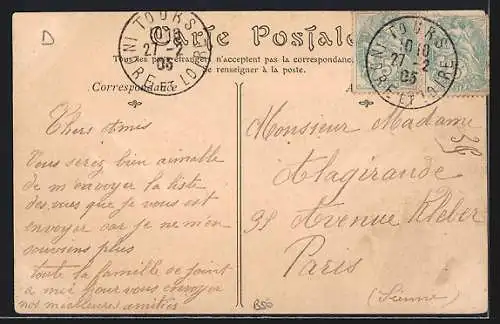 D
Carte Postale
TOURS
INDRE ET LOIRE
27 - 2
05
TOURS
10 10
27 - 2
05
INDRE ET LOIRE
Tous les pays étrangers n'acceptent pas la correspondance
se renseigner à la poste.
Correspondance
A
Chers Amis
Vous serez bien aimable
de m'envoyer la liste
des vues que je vous est
envoyer car je ne m'en
souviens plus
toute la famille se joint
a moi pour vous envoyer
nos meilleures amitiés
Monsieur Madame
Alagirande
Avenue Kléber
Paris
(Sienne)